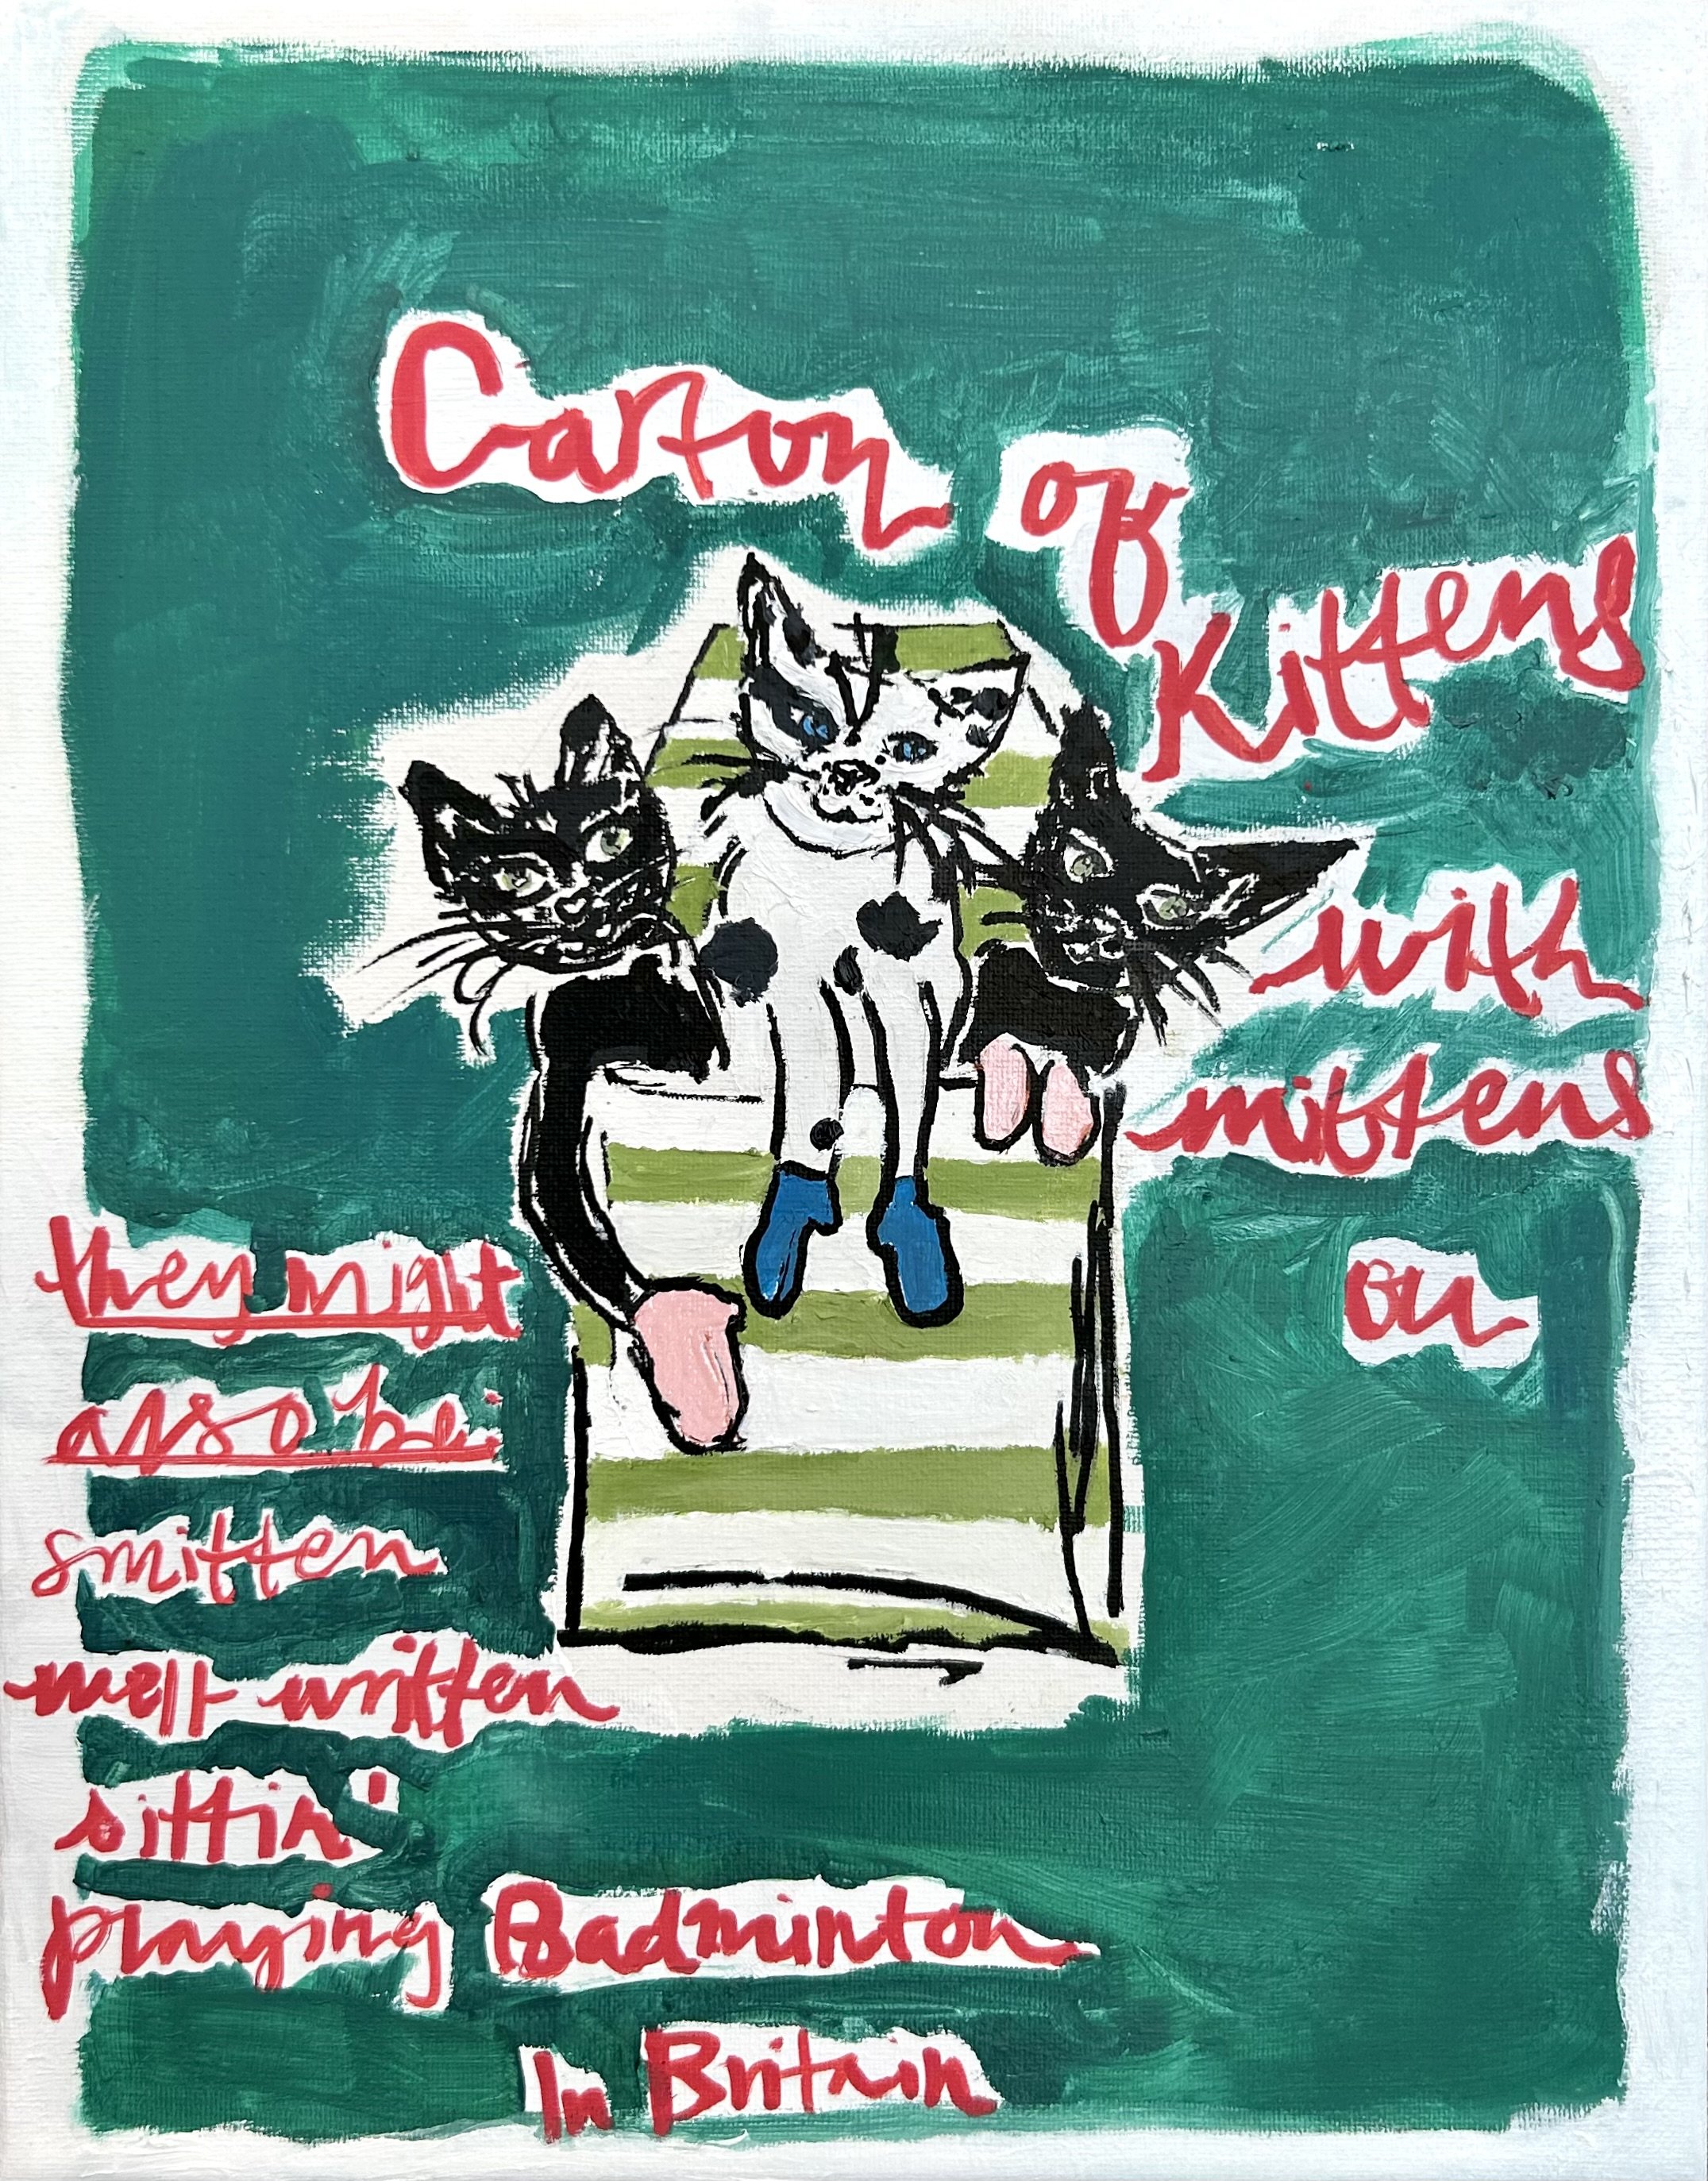 Carton of
Kittens
with
mittens
on
they might
also be:
smitten
well-written
sittin'
playing Badminton
In Britain